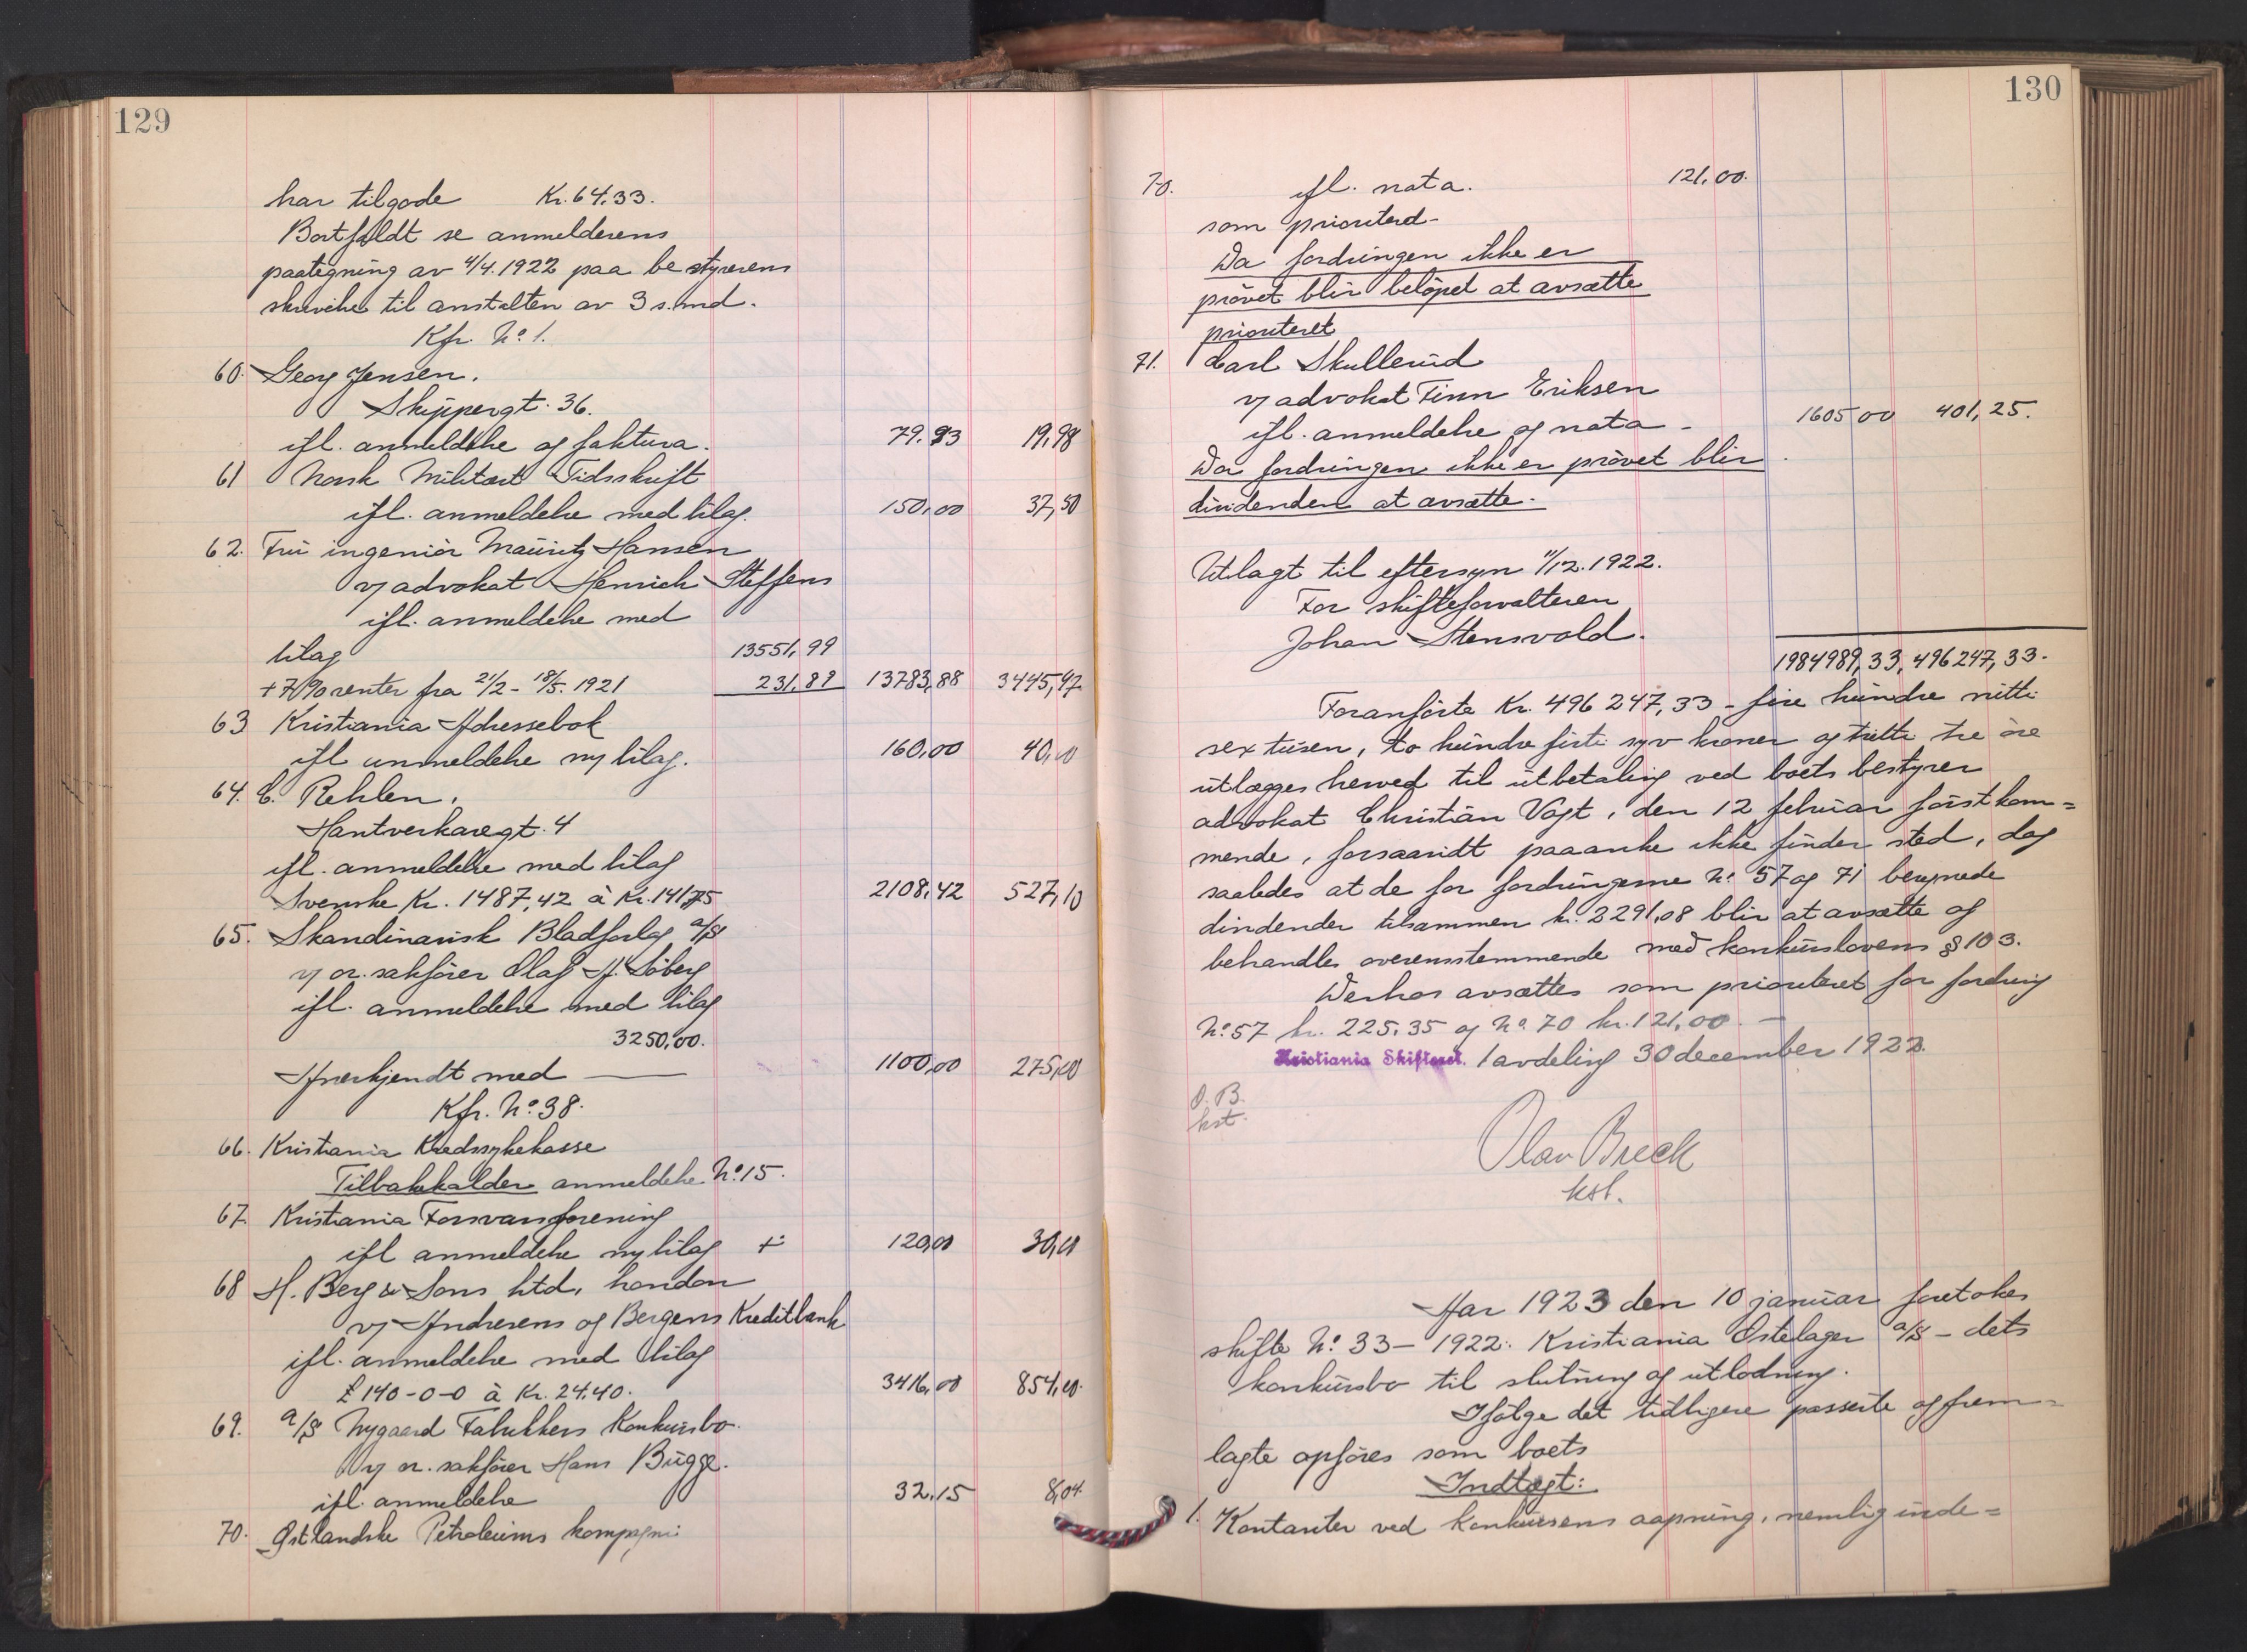 129
har tilgode Kr. 64.33.
Bortfaldt se anmelderens
paategning av 4/4. 1922 paa bestyrerens
skrivelse til anstalten av 3 s. md.
Kfr. No 1.
60. Georg Jensen.
Skippergt. 36.
ifl. anmeldelse og faktura. 79.93 19,98
61 Norsk Militært Tidsskrift
ifl. anmeldelse med bilag. 150,00 37,50
62. Fru ingeniør Mauritz Hansen
v/ advokat Henrich Steffens
ifl. anmeldelse med
bilag 13551,99
+ 7% renter fra 21/2 - 18/5. 1921 231.89 13783,88 3445,97
63 Kristiania Adressebok
ifl anmeldelse m/ bilag. 160,00 40,00
64. C. Rehlen,
Hantverkaregt. 4
ifl. anmeldelse med bilag
Svenske Kr. 1487,42 à Kr. 141,75 2108,42 527,10
65. Skandinavisk Bladforlag a/s
v/ or. sakfører Olaf H. Søberg
ifl. anmeldelse med bilag
3250,00.
Anerkjendt med 1100,00 275,00
Kfr. No. 38.
66. Kristiania Kredssykekasse
Tilbakekalder anmeldelse No. 15.
67. Kristiania Forsvarsforening
ifl anmeldelse m/ bilag 120,00 30,00
68 H. Berg & Sons Ltd, London
v/ Andresens og Bergens Kreditbank
ifl. anmeldelse med bilag
£ 140-0-0 à Kr. 24.40. 3416,00 854,00.
69. a/s Nygaard Fabrikkers Konkursbo.
v/ or. sakfører Hans Bugge.
ifl. anmeldelse 32.15 8,04.
70. Østlandske Petroleums kompagni
130
70. ifl. nota. 121,00.
som prioritert-
Da fordringen ikke er
prøvet blir beløpet at avsætte
prioriteret
71. Carl Skullerud
v/ advokat Finn Eriksen
ifl. anmeldelse og nota - 1605 00 401,25.
Da fordringen ikke er prøvet blir
dividenden at avsætte.
Utlagt til eftersyn 11/12. 1922.
For skifteforvalteren
Johan Stensvold.
1984989,33, 496247,33.
Foranførte Kr. 496 247,33 - fire hundre nitti
sex tusen, to hundre førti syv kroner og tretti tre øre
utlægges herved til utbetaling ved boets bestyrer
advokat Christian Vogt, den 12 februar førstkom=
mende, forsaavidt paaanke ikke finder sted, dog
saaledes at de for fordringerne No. 57 og 71 beregnede
dividender tilsammen kr. 2291,08 blir at avsætte og
behandles overensstemmende med konkurslovens § 103.
Derhos avsættes som prioriteret for fordring
No. 57 kr. 225.35 og No. 70 kr. 121,00. -
Kristiania Skifteret. 1 avdeling 30 december 1922.
O. B.
kst.
Olav Breck
kst.
Aar 1923 den 10 januar foretokes
skifte No. 33 - 1922. Kristiania Ostelager a/s - dets
konkursbo til slutning og utlodning.
Ifølge det tidligere passerte og frem=
lagte opføres som boets
Indtægt:
1. Kontanter ved konkursens aapning, nemlig inde=